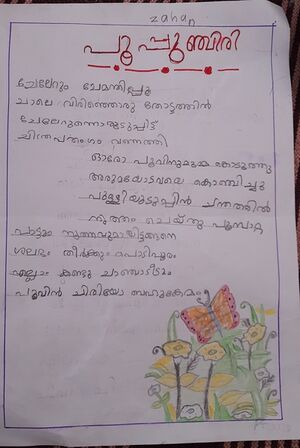 zahan
പൂപ്പുഞ്ചിരി
ചേലേറും ചേമന്തിപ്പൂ
ചാലെ വിരിഞ്ഞൊരു തോട്ടത്തിൻ
ചേലേറുന്നൊരുടുപ്പിട്ട്
ചിത്രപതംഗം വന്നെത്തി
ഓരോ പൂവിനുമുമ്മ കൊടുത്തു
അരുമയോടവയെ കൊഞ്ചിച്ചു
പുള്ളിയുടുപ്പിൻ ചന്തത്തിൽ
നൃത്തം ചെയ്തു പൂമ്പാറ്റ
പാട്ടും നൃത്തവുമായിട്ടങ്ങനെ
ശലഭം തീർക്കും പൊടിപൂരം
എല്ലാം കണ്ടു ചാഞ്ചാടീടും
പൂവിൻ ചിരിയോ ബഹുകേമം